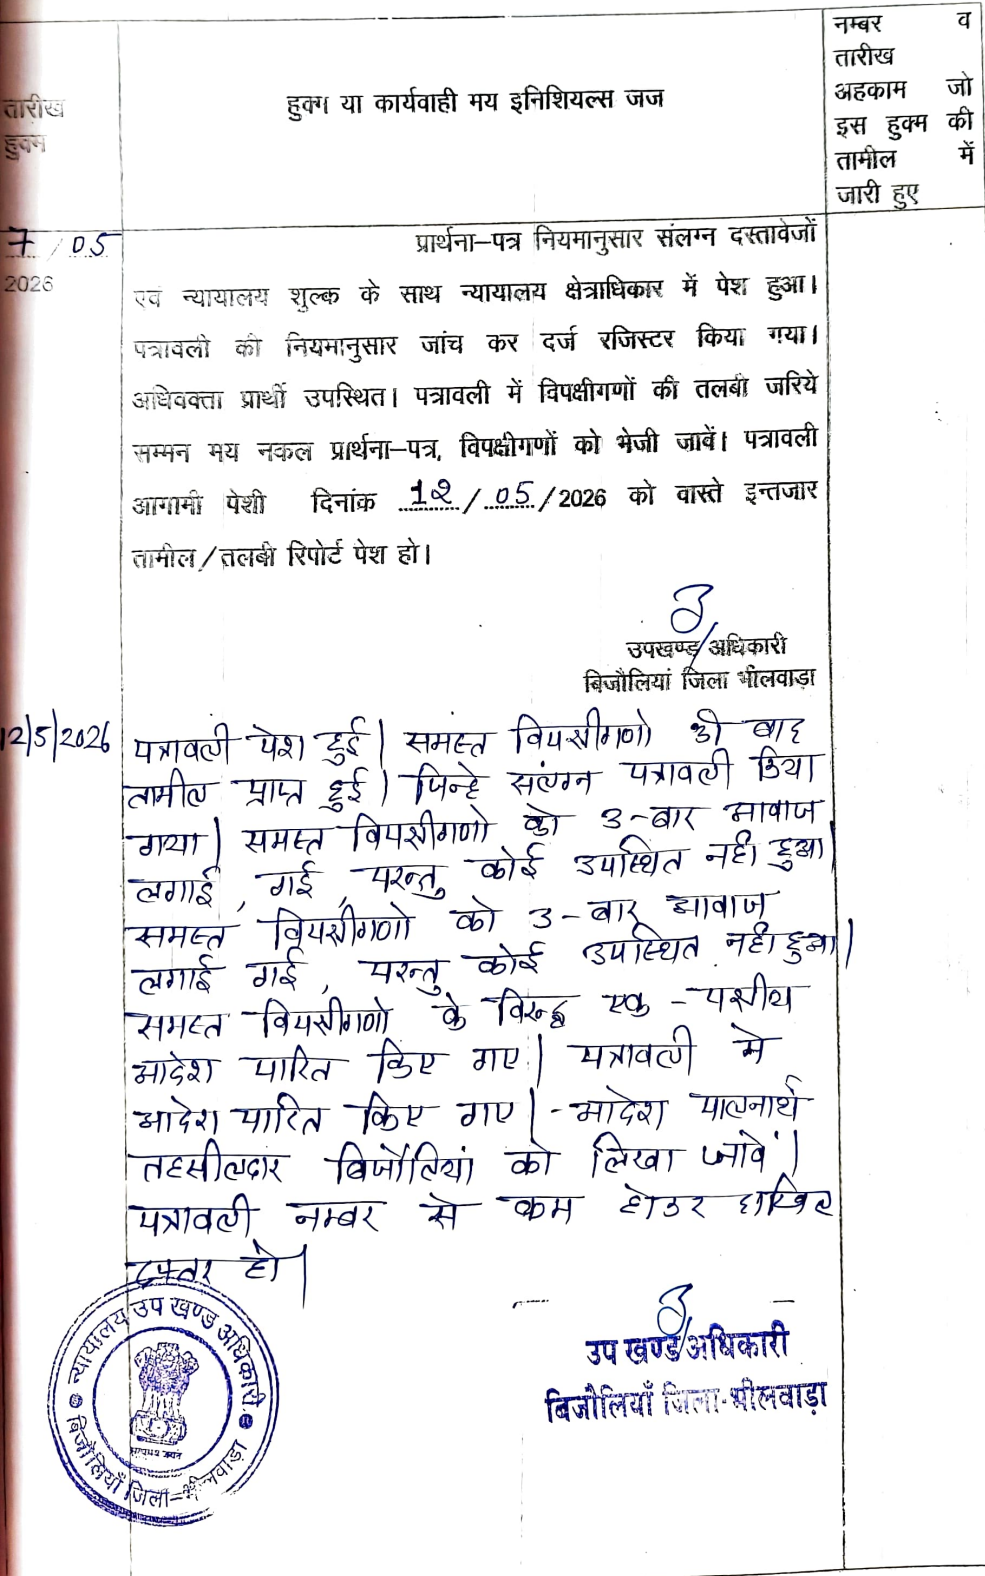 नम्बर व
तारीख
अहकाम जो
इस हुक्म की
तामील में
जारी हुए
तारीख
हुक्म
हुक्म या कार्यवाही मय इनिशियल्स जज
7/05
2026
प्रार्थना–पत्र नियमानुसार संलग्न दस्तावेजों
एवं न्यायालय शुल्क के साथ न्यायालय क्षेत्राधिकार में पेश हुआ।
पत्रावली की नियमानुसार जांच कर दर्ज रजिस्टर किया गया।
अधिवक्ता प्रार्थी उपस्थित। पत्रावली में विपक्षीगणों की तलबी जरिये
सम्मन मय नकल प्रार्थना–पत्र, विपक्षीगणों को भेजी जावें। पत्रावली
आगामी पेशी दिनांक 12/05/2026 को वास्ते इन्तजार
तामील/तलबी रिपोर्ट पेश हो।
उपखण्ड अधिकारी
बिजौलियां जिला भीलवाड़ा
12/5/2026
पत्रावली पेश हुई। समस्त विपक्षीगणो की बाद
तामील प्राप्त हुई। जिन्हे संलग्न पत्रावली किया
गया। समस्त विपक्षीगणो को 3-बार आवाज
लगाई, गई, परन्तु कोई उपस्थित नही हुआ।
समस्त विपक्षीगणो को 3-बार आवाज
लगाई गई, परन्तु कोई उपस्थित नही हुआ।
समस्त विपक्षीगणो के विरुद्ध एक-पक्षीय
आदेश पारित किए गए। पत्रावली मे
आदेश पारित किए गए।-आदेश पालनार्थ
तहसीलदार बिजौलियां को लिखा जावें।
पत्रावली नम्बर से कम होकर दाखिल
दफ्तर हो।
उप खण्ड अधिकारी
बिजौलियाँ जिला-भीलवाड़ा
न्यायालय उप खण्ड अधिकारी
बिजौलियाँ जिला–भीलवाड़ा